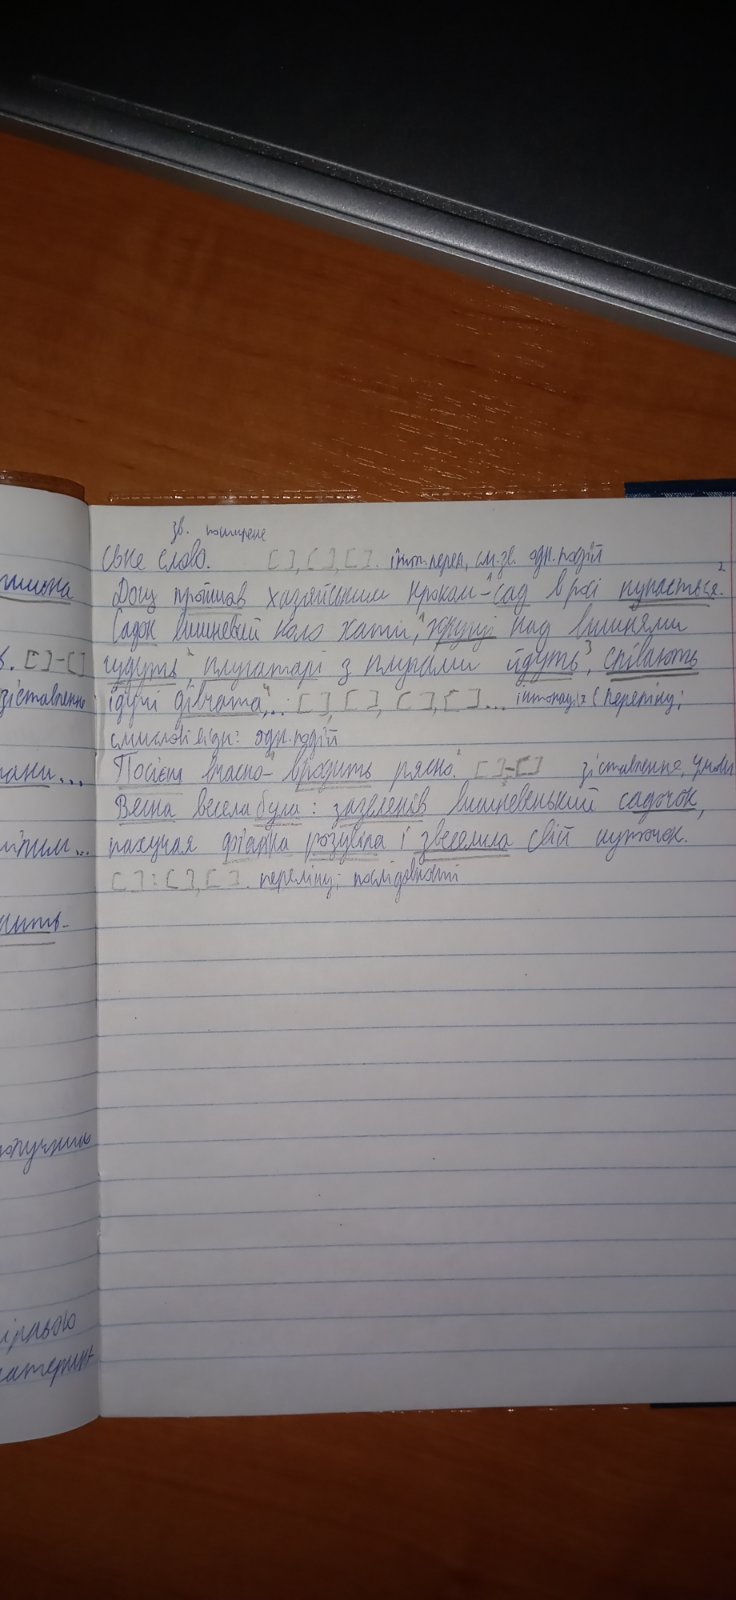 ишина
в. [ ]-[ ]
зіставлення
зв. поширене
ське слово. [ ], [ ], [ ]. інт. перел, см. зв. одн. подій
Дощ пройшов хазяйським кроком - сад в росі купається.
Садок вишневий коло хати, хрущі над вишнями
гудуть, плугатарі з плугами йдуть, співають
ідучі дівчата,... [ ], [ ], [ ], [ ]... інтонація (перелік);
смислові відн: одн. подій
Посієш вчасно - вродить рясно. [ ]-[ ] зіставлення, умови
Весна весела була: зазеленів вишневенький садочок,
пахучая фіалка розцвіла і звеселила свій куточок.
[ ]: [ ], [ ]. переліку; послідовності